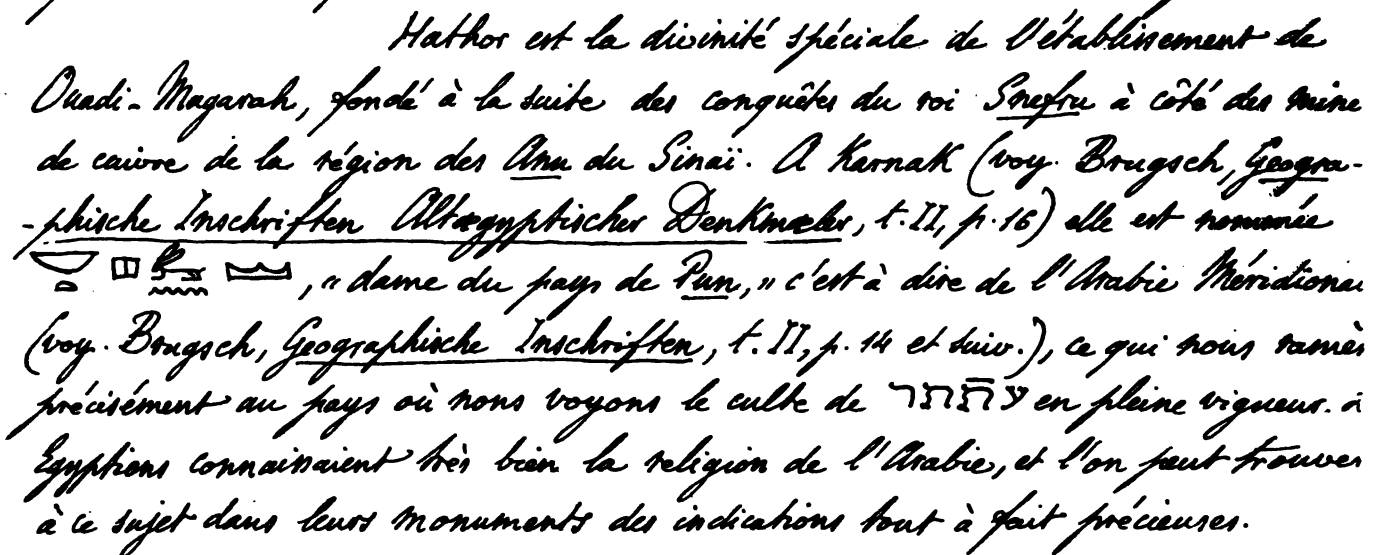 Hathor est la divinité spéciale de l'établissement de
Ouadi-Magarah, fondé à la suite des conquêtes du roi Snefru à côté des mine
de cuivre de la région des Anu du Sinaï. A Karnak (voy. Brugsch, Geogra-
-phische Inschriften Altægyptischer Denkmæler, t. II, p. 16) elle est nommée
𓎟𓏏𓊪𓃹𓈖𓈉, "dame du pays de Pun," c'est à dire de l'Arabie Méridiona
(voy. Brugsch, Geographische Inschriften, t. II, p. 14 et suiv.), ce qui nous ramèn
précisément au pays où nous voyons le culte de עתתר en pleine vigueur.
Egyptiens connaissaient très bien la religion de l'Arabie, et l'on peut trouver
à ce sujet dans leurs monuments des indications tout à fait précieuses.